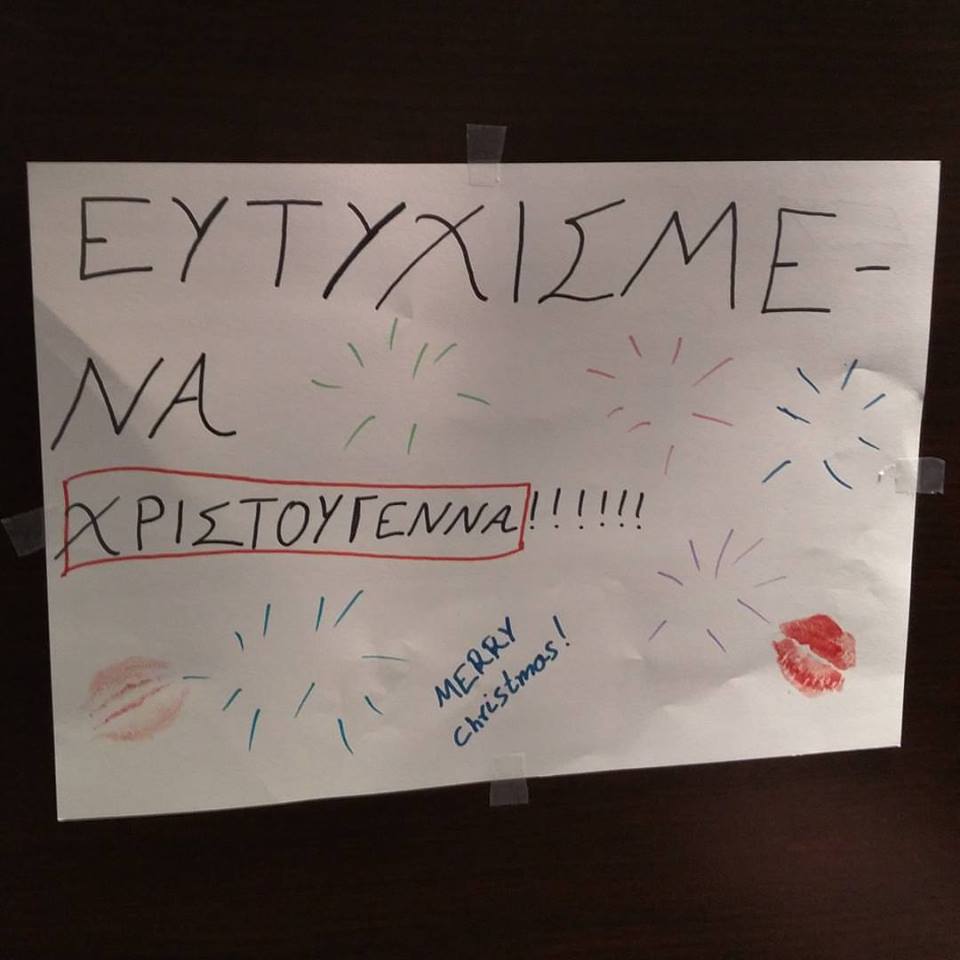 ΕΥΤΥΧΙΣΜΕ-
ΝΑ
ΧΡΙΣΤΟΥΓΕΝΝΑ!!!!!!
MERRY
christmas!